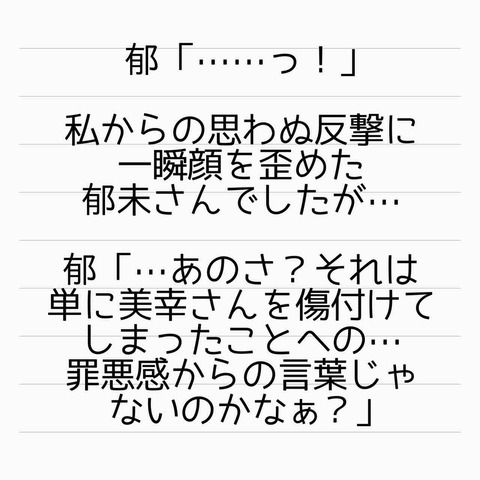 郁「……っ！」
私からの思わぬ反撃に
一瞬顔を歪めた
郁未さんでしたが…
郁「…あのさ？それは
単に美幸さんを傷付けて
しまったことへの…
罪悪感からの言葉じゃ
ないのかなぁ？」